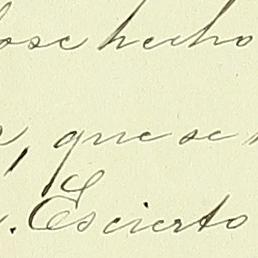 ose hecho
, que se
. Es cierto